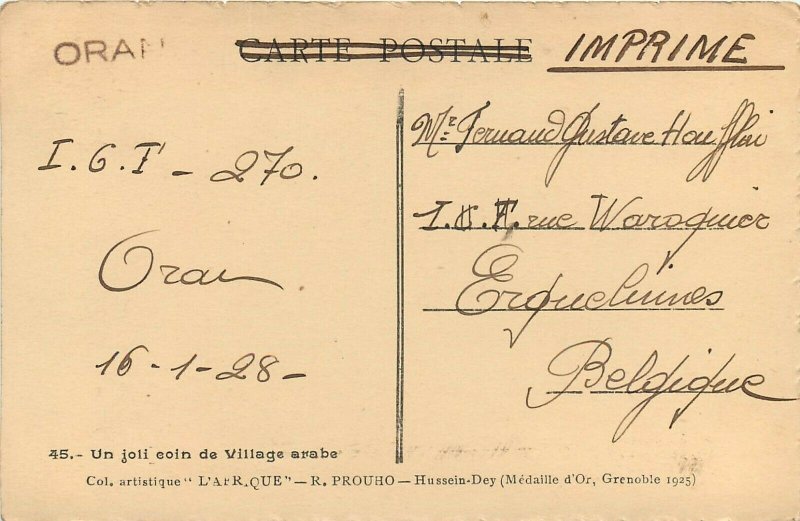 ORAN
CARTE POSTALE
IMPRIME
I. G. T - 270.
Oran
16-1-28-
Mr Fernand Gustave
rue Waroquier
Erquelinnes
Belgique
45.- Un joli coin de Village arabe
Col. artistique "L'AFRIQUE" — R. PROUHO — Hussein-Dey (Médaille d'Or, Grenoble 1925)